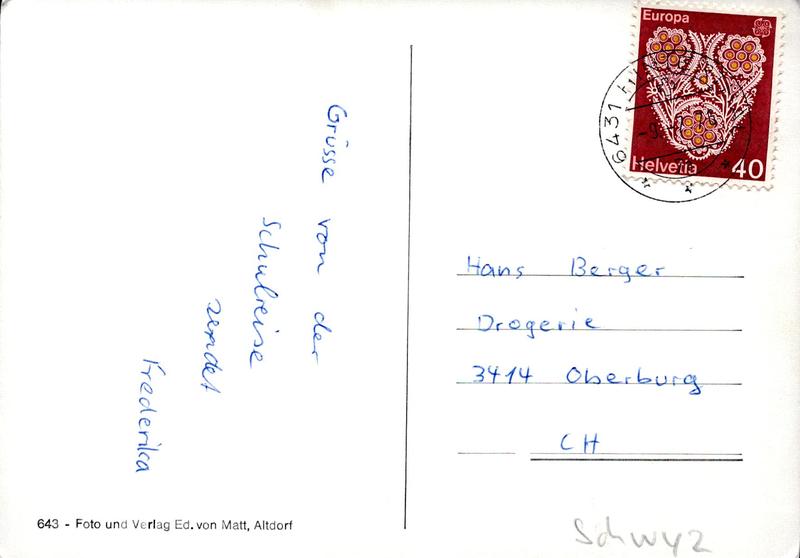 Europa
Helvetia 40
6431
Grüsse von der
Schulreise
sendet
Frederika
Hans Berger
Drogerie
3414 Oberburg
CH
643 - Foto und Verlag Ed. von Matt, Altdorf
Schwyz